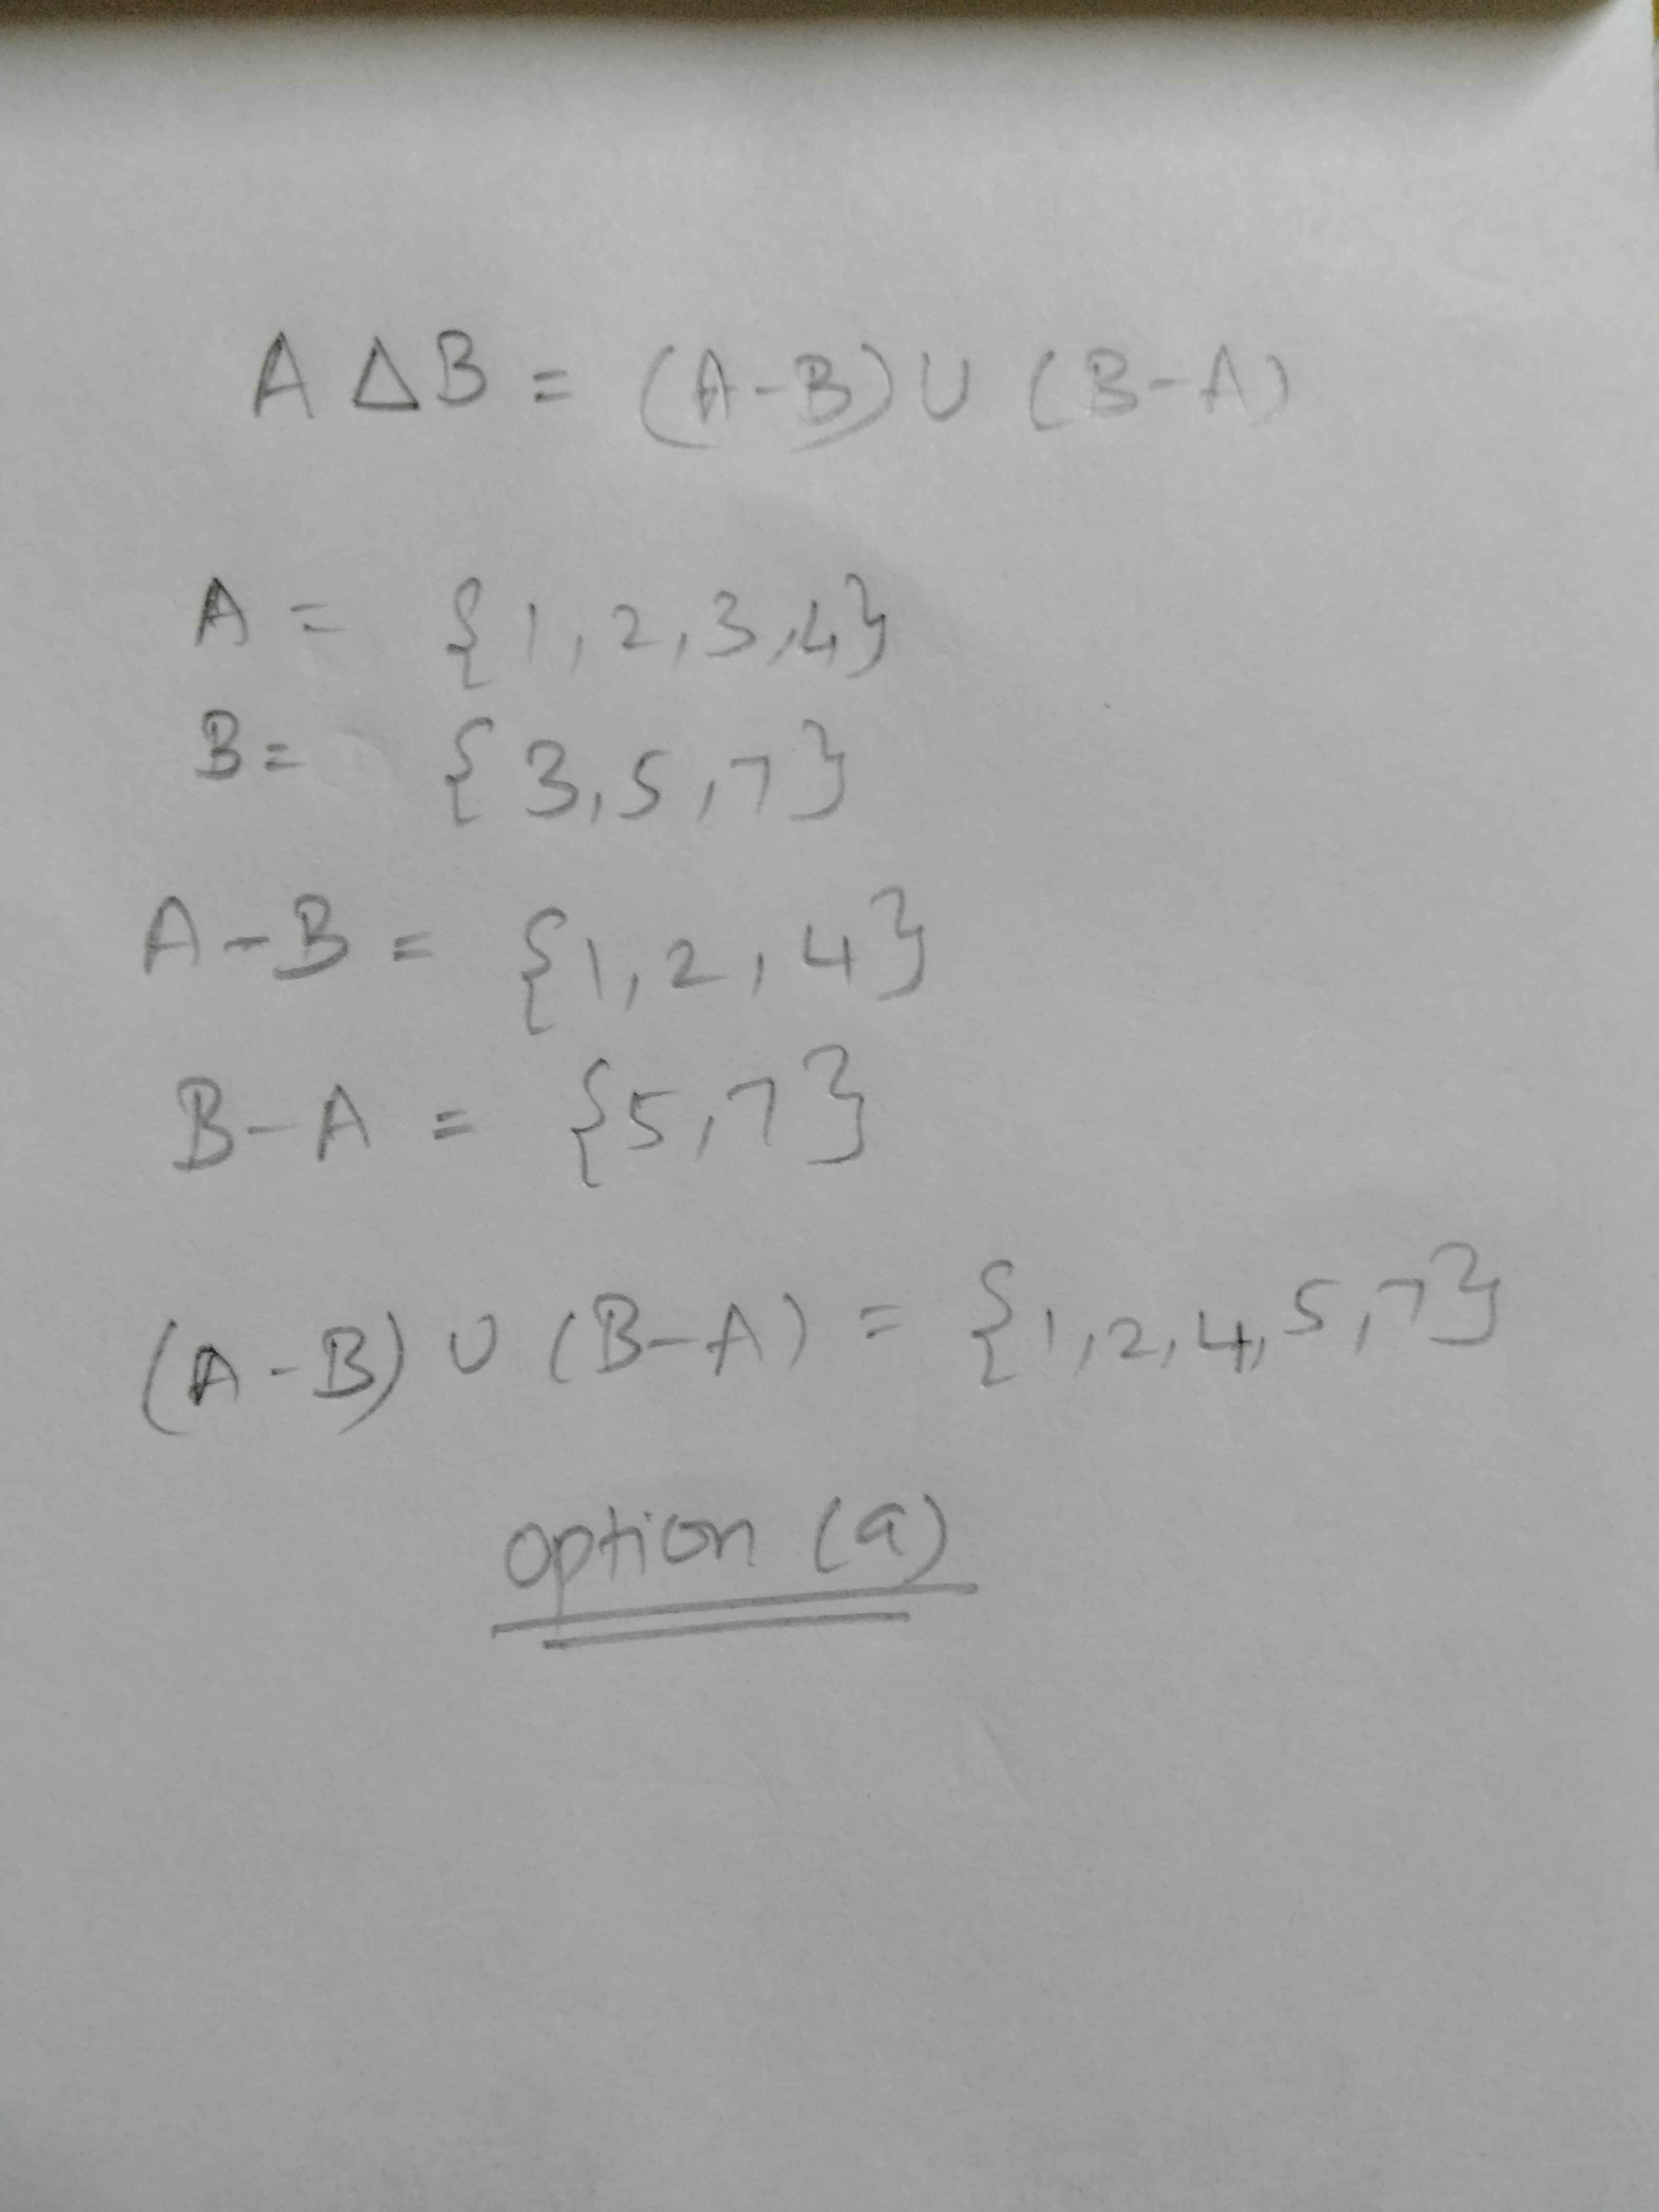 A △ B = (A-B) ∪ (B-A)
A = {1,2,3,4}
B = {3,5,7}
A-B = {1,2,4}
B-A = {5,7}
(A-B) ∪ (B-A) = {1,2,4,5,7}
option (a)